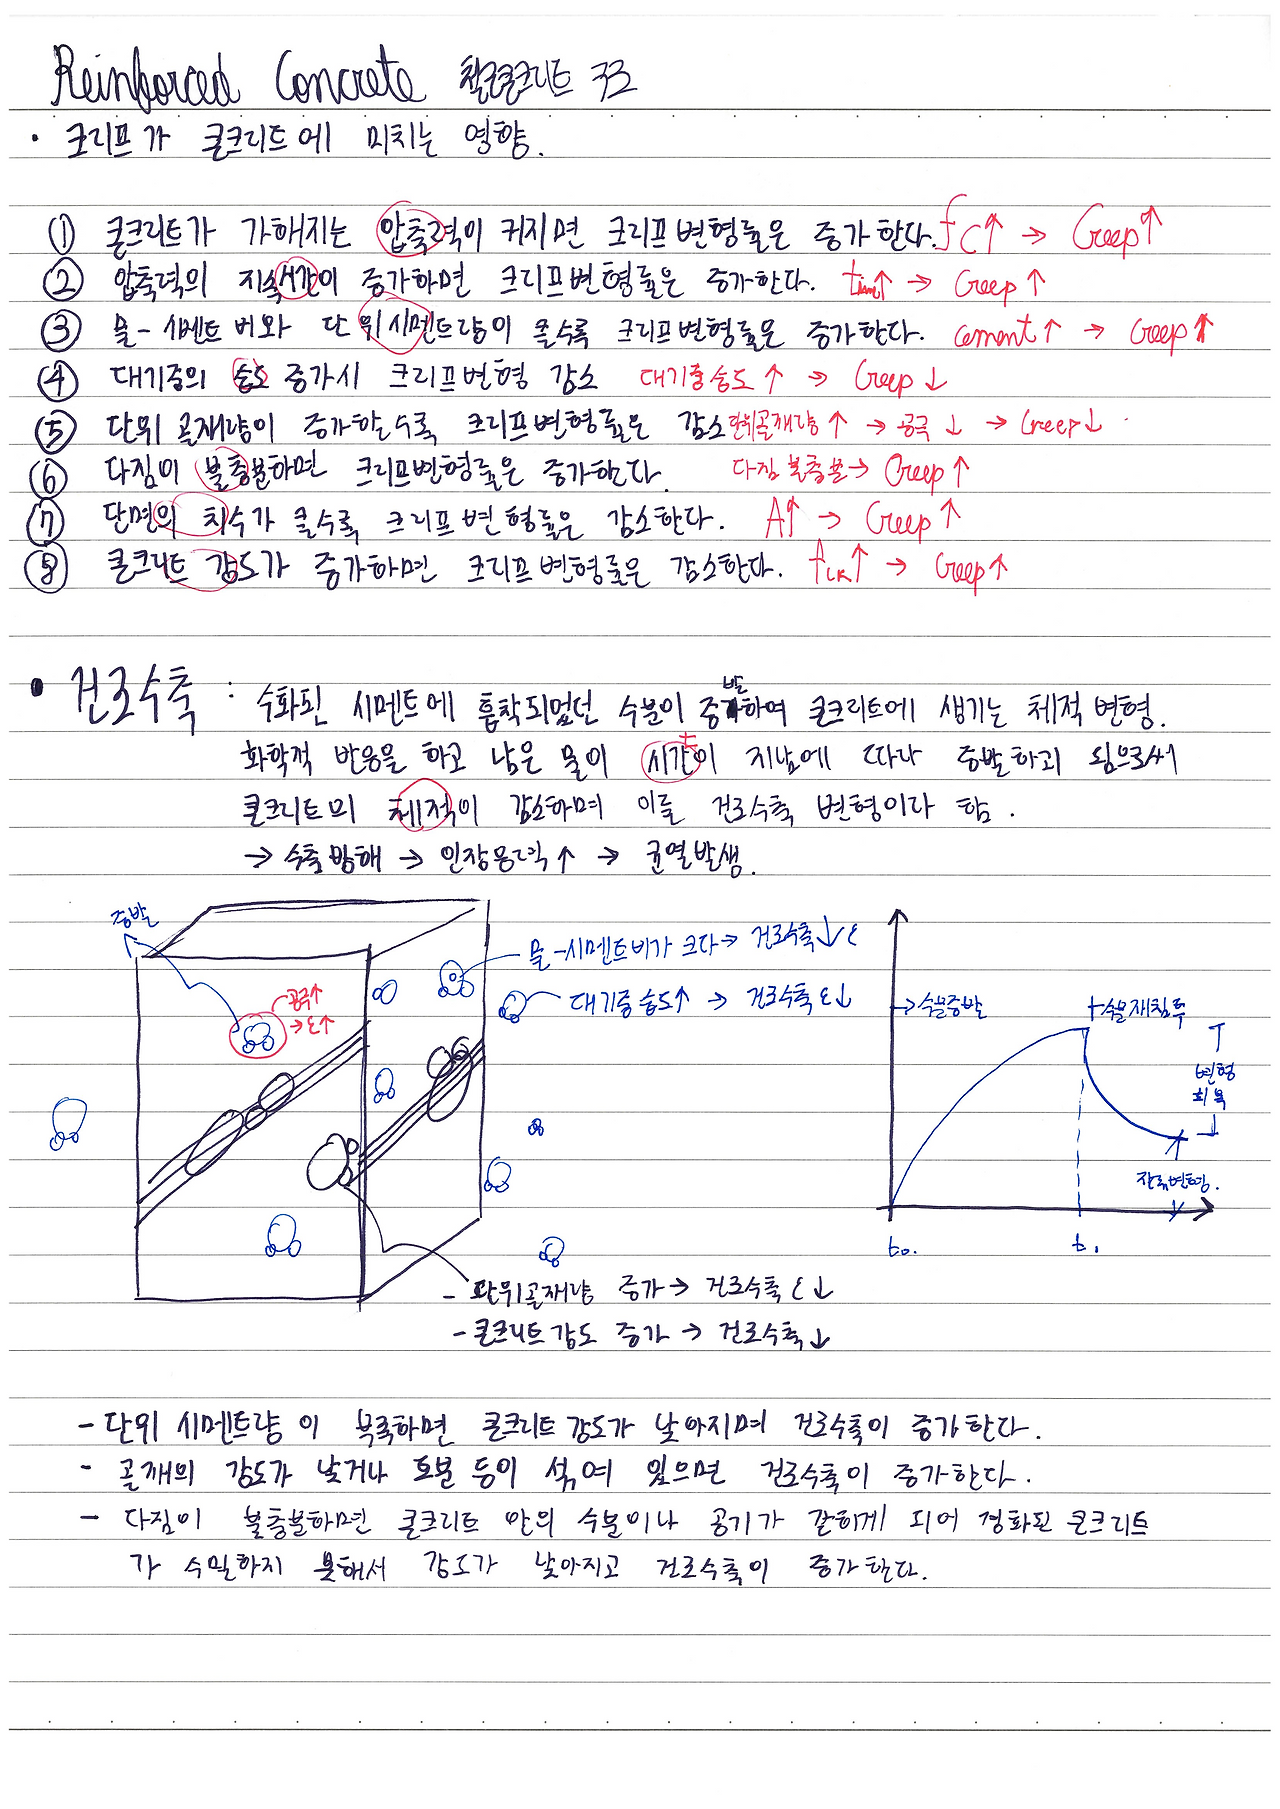 Reinforced Concrete 철근콘크리트 구조
• 크리프가 콘크리트에 미치는 영향.
① 콘크리트가 가해지는 압축력이 커지면 크리프변형률은 증가한다. fc↑ → Creep↑
② 압축력의 지속시간이 증가하면 크리프변형률은 증가한다. time↑ → Creep↑
③ 물-시멘트비와 단위시멘트량이 클수록 크리프변형률은 증가한다. cement↑ → Creep↑
④ 대기중의 습도 증가시 크리프변형 감소 대기중습도↑ → Creep↓
⑤ 단위골재량이 증가할수록 크리프변형률은 감소 단위골재량↑ → 공극↓ → Creep↓
⑥ 다짐이 불충분하면 크리프변형률은 증가한다. 다짐 불충분→ Creep↑
⑦ 단면의 치수가 클수록 크리프변형률은 감소한다. A↑ → Creep↑
⑧ 콘크리트 강도가 증가하면 크리프변형률은 감소한다. fck↑ → Creep↑
• 건조수축 : 수화된 시멘트에 흡착되었던 수분이 증발하여 콘크리트에 생기는 체적 변형.
화학적 반응을 하고 남은 물이 시간이 지남에 따라 증발하게 됨으로써
t
콘크리트의 체적이 감소하며 이를 건조수축 변형이라 함.
→ 수축방해 → 인장응력↑ → 균열발생.
증발
공극↑
→ ε↑
물-시멘트비가 크다→ 건조수축↓ε
대기중습도↑ → 건조수축 ε↓
→수분증발
수분재침투
변형
회복
잔류변형.
t₀.
t₁
- 단위골재량 증가→ 건조수축 ε↓
- 콘크리트강도 증가 → 건조수축↓
- 단위 시멘트량이 부족하면 콘크리트강도가 낮아지며 건조수축이 증가한다.
- 골재의 강도가 낮거나 토분 등이 섞여 있으면 건조수축이 증가한다.
- 다짐이 불충분하면 콘크리트 안의 수분이나 공기가 갇히게 되어 경화된 콘크리트
가 수밀하지 못해서 강도가 낮아지고 건조수축이 증가한다.